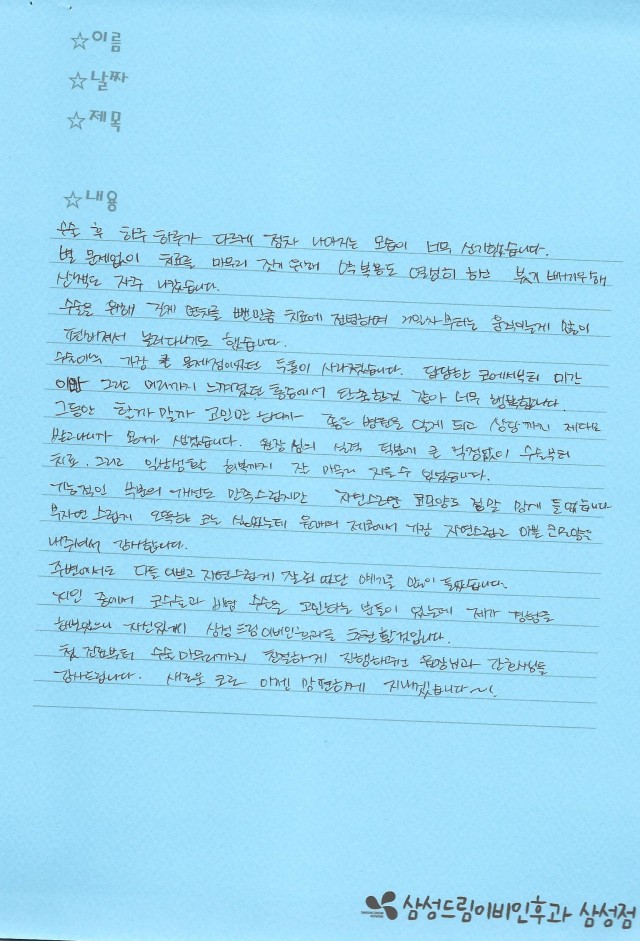 ☆이름
☆날짜
☆제목
☆내용
수술 후 하루 하루가 다르게 점차 나아지는 모습이 너무 신기했습니다.
별 문제없이 치료를 마무리 짓기 위해 약 복용도 열심히 하고 붓기 빼기위해
산책도 자주 나갔습니다.
수술을 위해 길게 연차를 뺀만큼 치료에 전념하며 7일차부터는 움직이는게 많이
편해져서 놀러다니기도 했습니다.
수술이후 가장 큰 문제점이었던 두통이 사라졌습니다. 답답한 코에서부터 미간
이마 그리고 머리까지 느껴졌던 통증에서 탈출한것 같아 너무 행복합니다.
그동안 할까 말까 고민만 하다가 좋은 병원을 알게 되고 상담까지 제대로
받고나니까 용기가 생겼습니다. 원장님의 실력 덕분에 큰 걱정없이 수술부터
치료. 그리고 일상생활 회복까지 잘 마무리 지을 수 있었습니다.
기능적인 부분의 개선도 만족스럽지만 자연스러운 코모양도 정말 맘에 들었습니다
부자연스럽게 오똑한 코는 싫었는데 원장님이 제코에서 가장 자연스럽고 이쁜 코모양을
내주셔서 감사합니다.
주변에서도 다들 이쁘고 자연스럽게 잘 됐단 얘기를 많이 들었습니다.
지인 중에서 코수술과 비염 수술을 고민하는 분들이 있는데 제가 경험을
해보았으니 자신있게 삼성드림이비인후과를 추천 할것입니다.
첫 진료부터 수술 마무리까지 친절하게 진행해주신 원장님과 간호사분들
감사드립니다. 새로운 코로 이젠 맘편하게 지내겠습니다~!
삼성드림이비인후과 삼성점